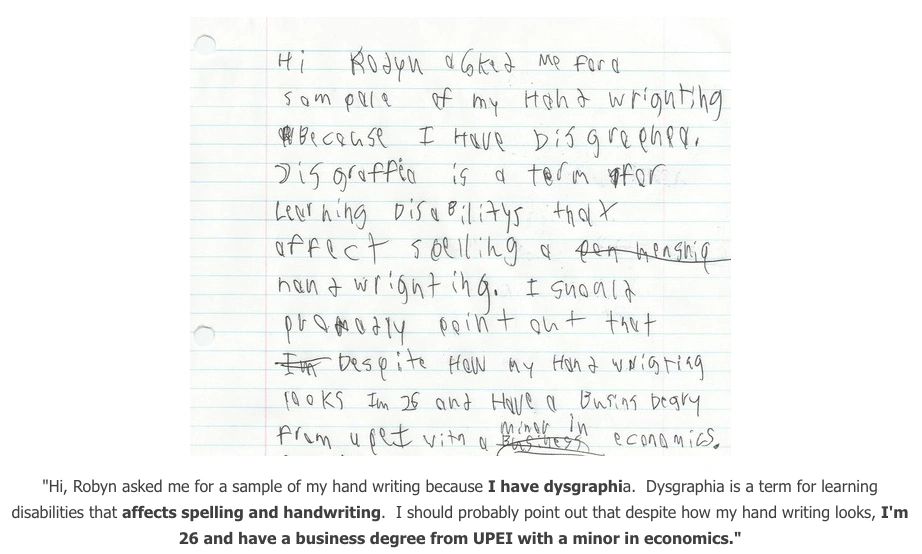 Hi Rodyn asked me for a
sampale of my Hand wrighting
Because I Have Disgraphea.
Disgraffia is a term for
Learning Disabilitys that
affect spelling a penmenship
hand wrighting. I should
probadly point out that
Im Despite How my Hand wrigting
looks Im 26 and Have a Busins Degry
from upeI with a minor in Business economics.
"Hi, Robyn asked me for a sample of my hand writing because I have dysgraphia. Dysgraphia is a term for learning
disabilities that affects spelling and handwriting. I should probably point out that despite how my hand writing looks, I'm
26 and have a business degree from UPEI with a minor in economics."